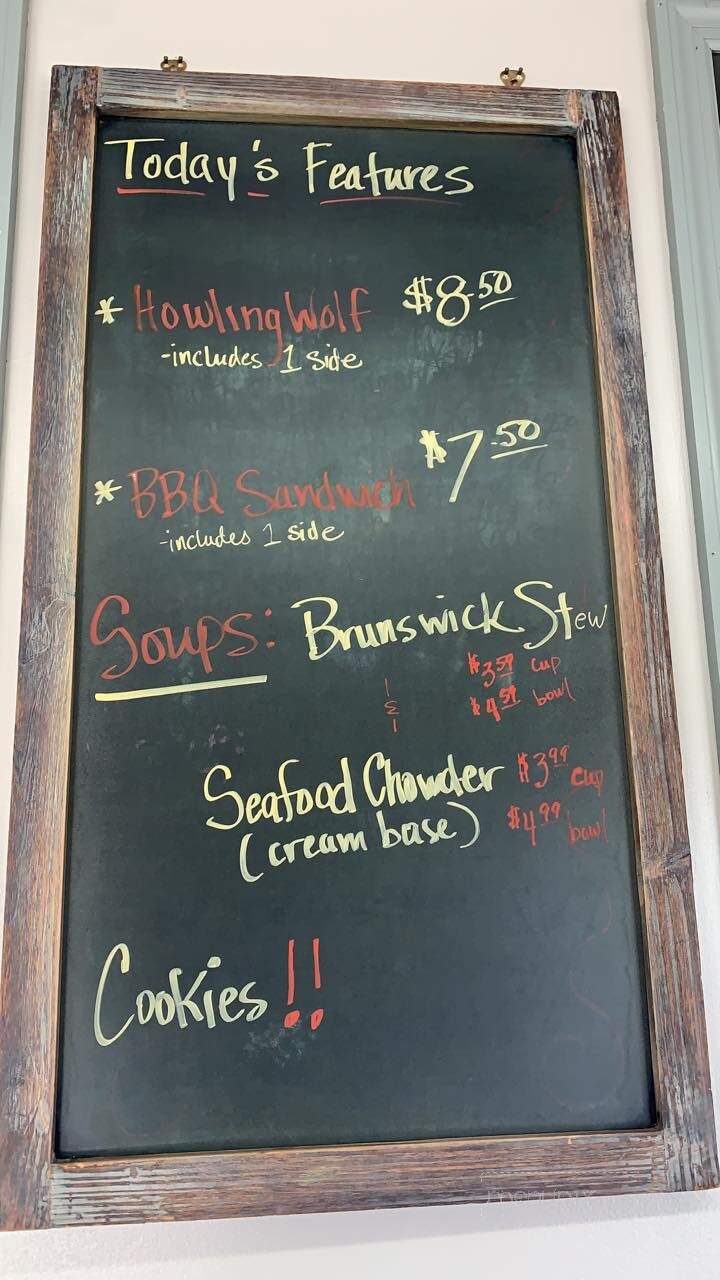 Today's Features
* Howling Wolf $8.50
-includes 1 side
* BBQ Sandwich $7.50
-includes 1 side
Soups: Brunswick Stew
$3.59 cup
$4.59 bowl
&
Seafood Chowder $3.99 cup
(cream base) $4.99 bowl
Cookies!!